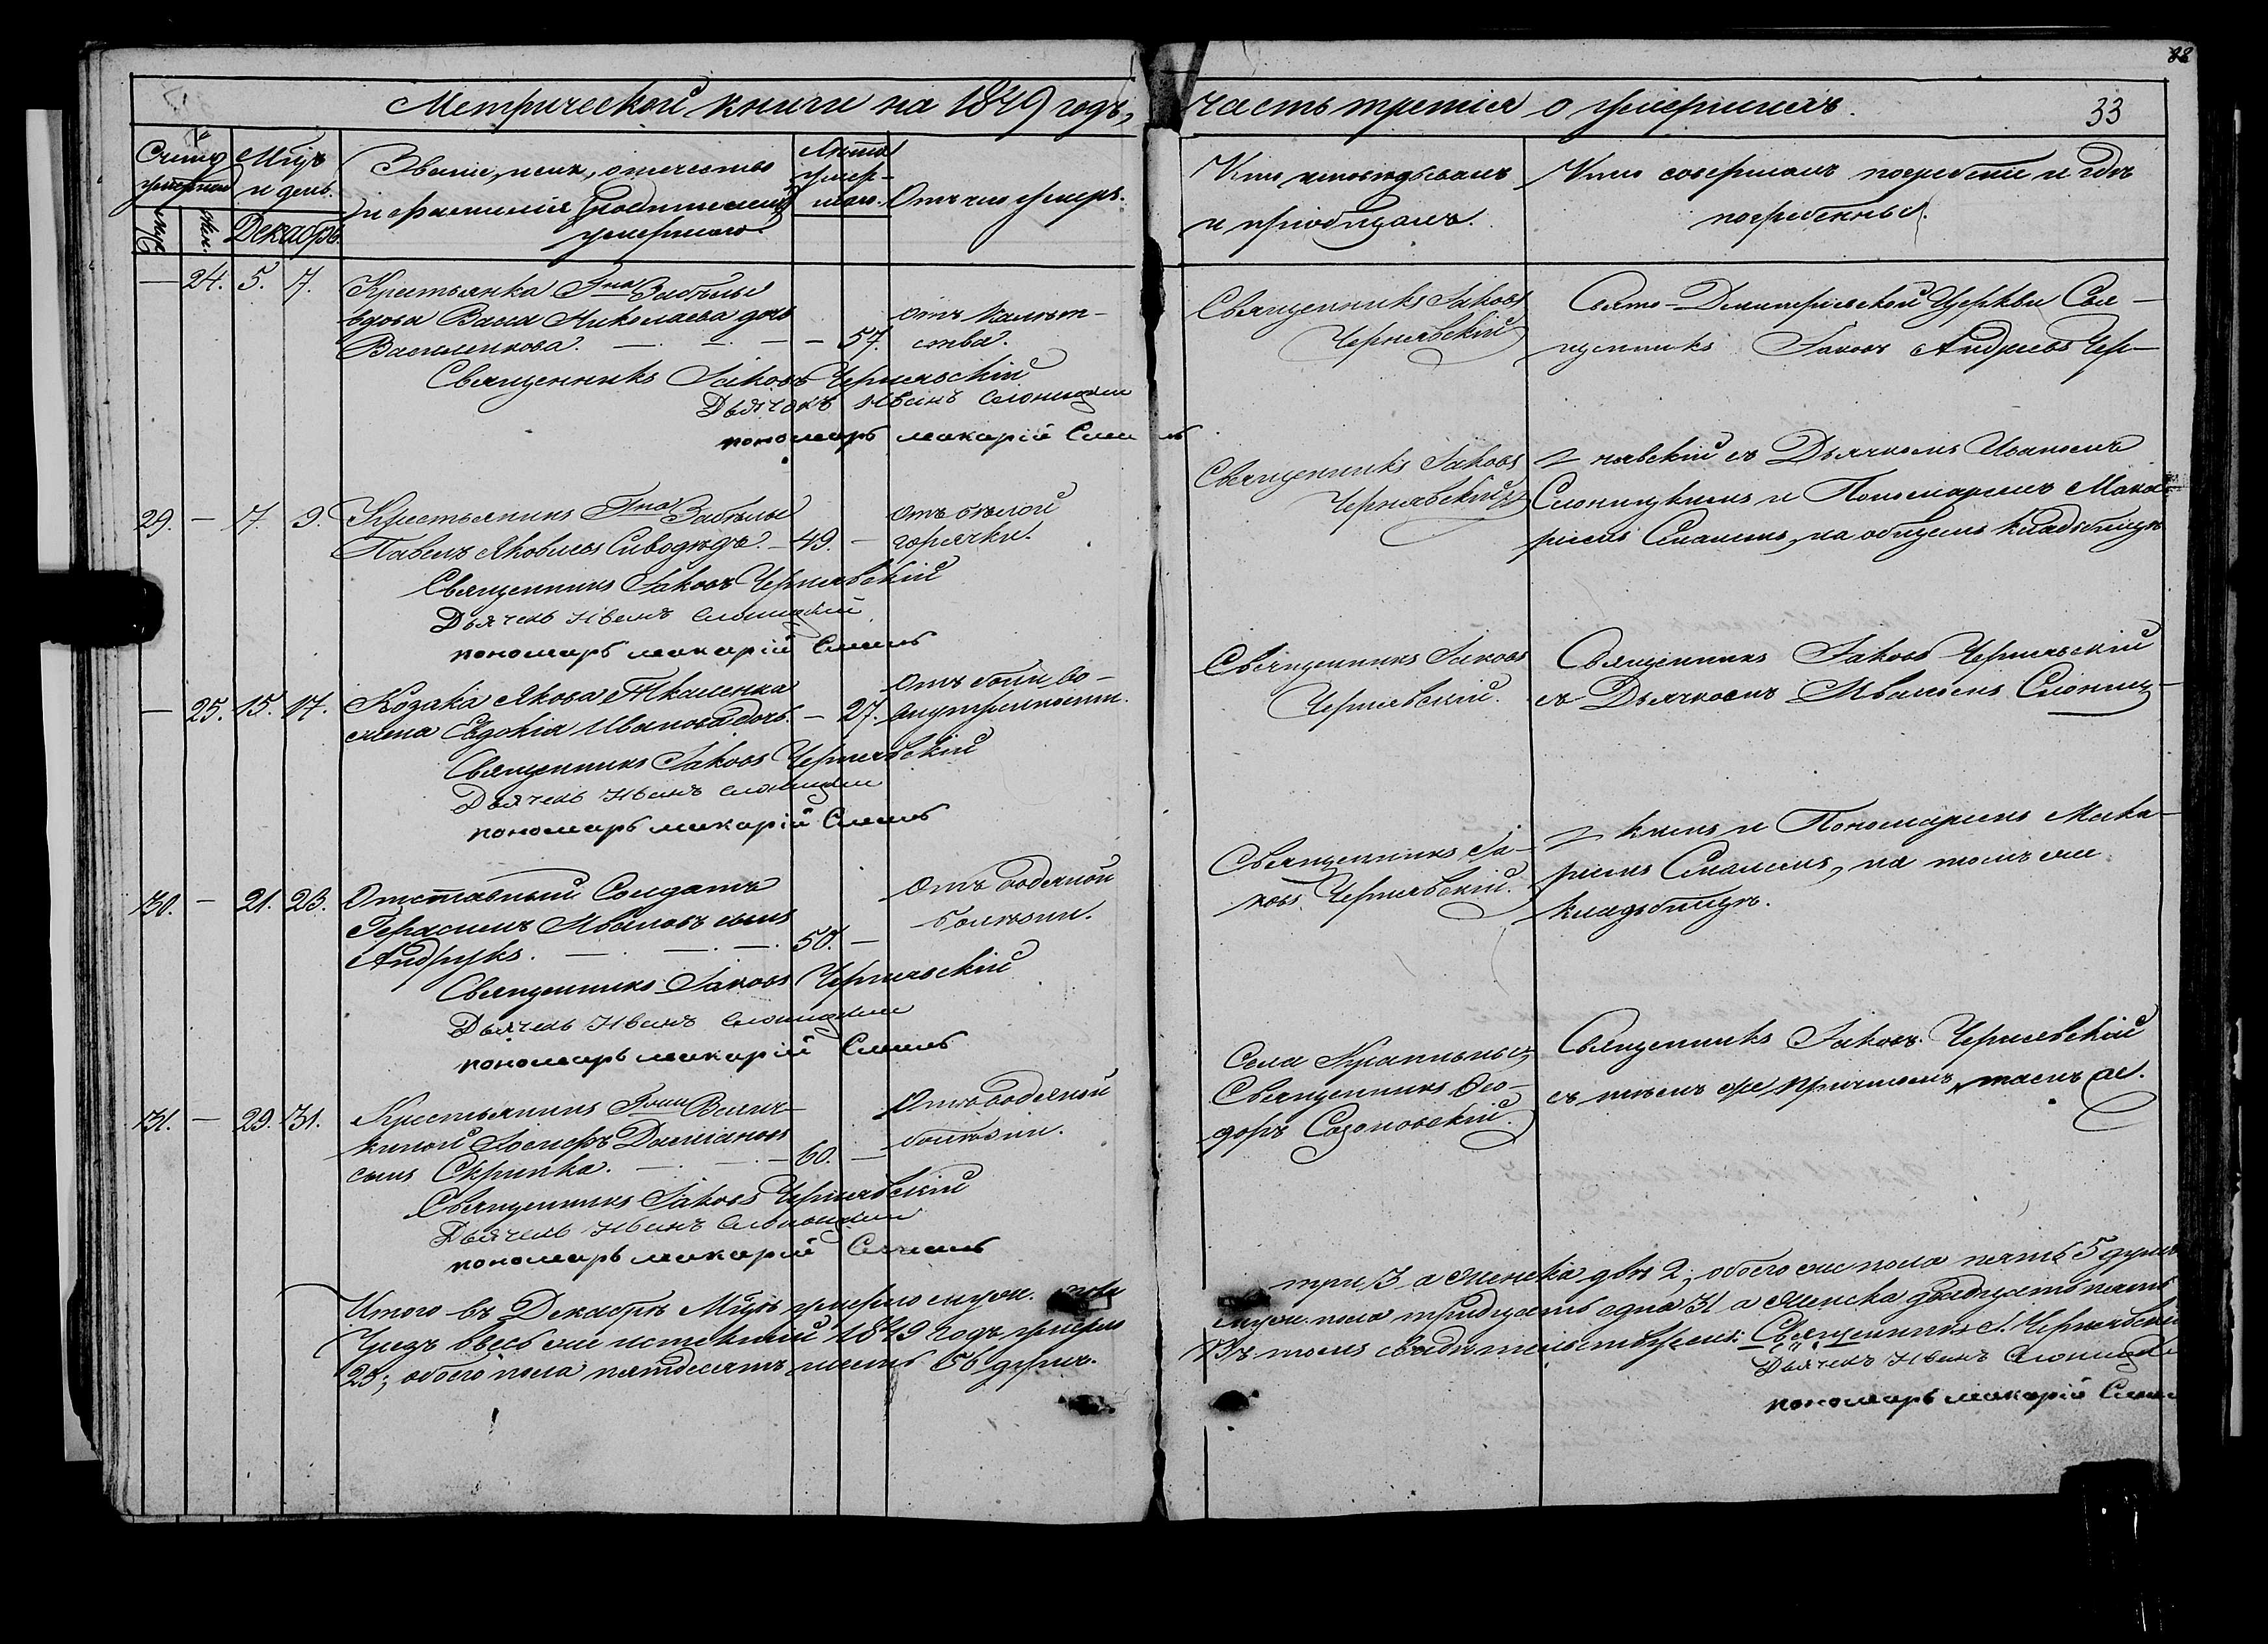 Метрической книги на 1849 годъ, часть третія о умершихъ.
33
Счетъ умершихъ
Муж.
Жен.
Мѣсяцъ и день.
Декабрь.
Званіе, имя, отчество
и фамилія
умершаго.
Лѣта
умер-
шаго.
Отъ чего умеръ.
Кто исповѣдывалъ
и пріобщалъ.
Кто совершалъ погребеніе и гдѣ
погребены.
— 24. 5. 7.
Крестьянка Гна Забѣлы
вдова Николаева дочь
Василенкова. — 57.
Священникъ Іаковъ Чернявскій
Дьячекъ Иванъ Слоницкій
пономарь макарій
Священникъ Іаковъ
Чернявскій
Свято-Димитріевской Церкви Свя-
щенникъ Іаковъ Андреевъ Чер-
29. — 7. 9.
Крестьянинъ Гна Забѣлы
Павелъ Яковлевъ Сиводѣдъ. — 49. —
отъ бѣлой
горячки.
Священникъ Іаковъ Чернявскій
Дьячекъ Иванъ Слоницкій
пономарь макарій
Священникъ Іаковъ
Чернявскій
нявскій съ Дьячкомъ Иваномъ
Слоницкимъ и Пономаремъ Мака-
ріемъ на общемъ кладбищѣ
— 25. 15. 17.
Козака Якова Ткаленка
жена Евдокія Иванова дочь. — 27.
отъ боли во
внутренност.
Священникъ Іаковъ Чернявскій
Дьячекъ Иванъ Слоницкій
пономарь макарій
Священникъ Іаковъ
Чернявскій.
Священникъ Іаковъ Чернявскій
съ Дьячкомъ Иваномъ Слониц-
30. — 21. 23.
Отставный Солдатъ
Герасимъ Ивановъ сынъ
Андрукъ. — 50. —
Отъ водяной
болѣзни.
Священникъ Іаковъ Чернявскій
Дьячекъ Иванъ Слоницкій
пономарь макарій
Священникъ Іа-
ковъ Чернявскій.
кимъ и Пономаремъ Мака-
ріемъ на томъ же
кладбищѣ.
31. — 29. 31.
Крестьянинъ
Іосифъ Даміановъ
сынъ Скрипка. — 60. —
Отъ водяной
болѣзни.
Священникъ Іаковъ Чернявскій
Дьячекъ Иванъ Слоницкій
пономарь макарій
Села
Священникъ Ѳео-
доръ Созоновскій.
Священникъ Іаковъ Чернявскій
съ тѣмъ же причтомъ, тамъ же.
Итого въ Декабрѣ Мцѣ умерло муж. пола три 3 а женска двѣ 2; обоего же пола пять 5 душъ
весь же истекшій 1849 годъ умерло муж. пола тридцать одна 31 а женска двадцать пять
25; обоего пола пятьдесятъ шесть 56 душъ. Въ томъ свидѣтельствуемъ: Священникъ І. Чернявскій
Дьячекъ Иванъ Слоницкій
пономарь макарій